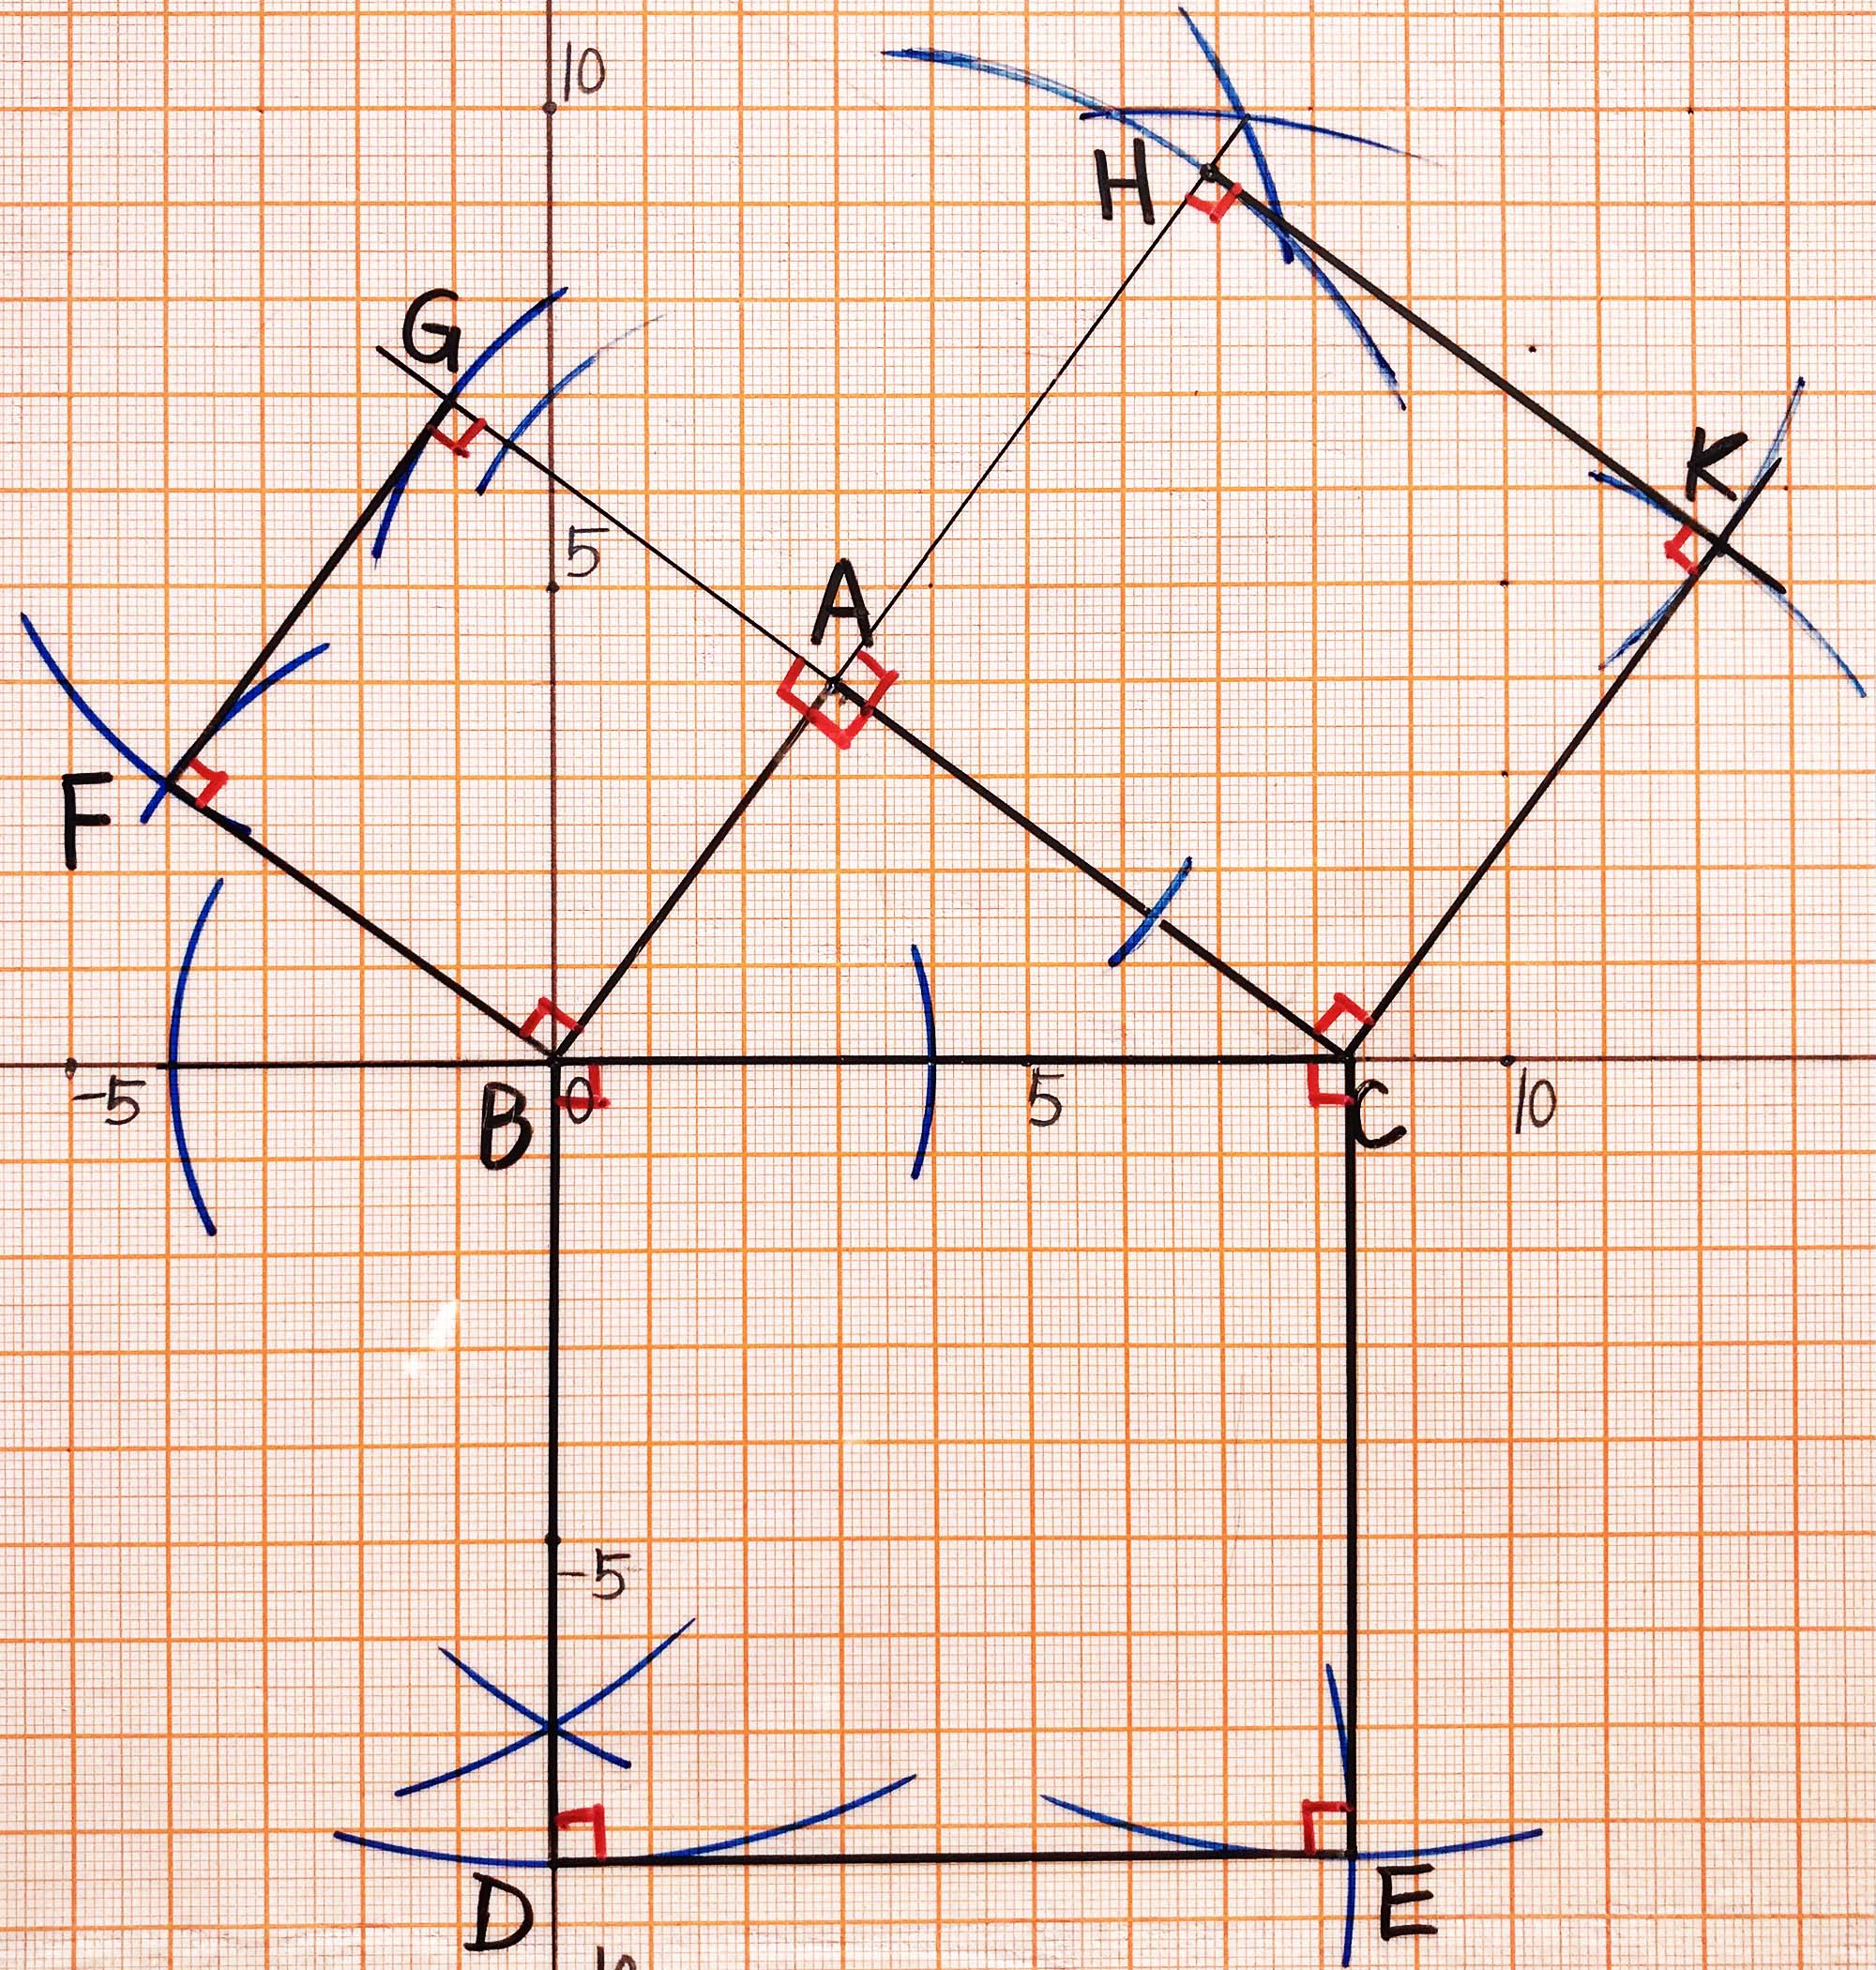 10
H
G
K
5
A
F
-5
B
0
5
C
10
-5
D
E